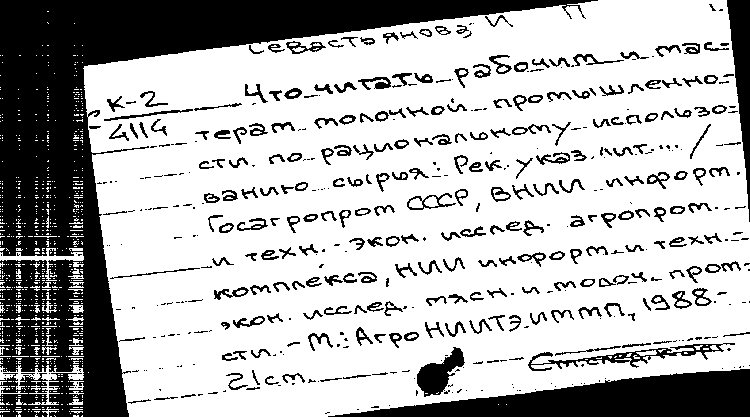 Севастьянова И П
К-2 Что читать рабочим и мас-
4114 терам молочной промышленно-
сти по рациональному использо-
ванию сырья: Рек. указ. лит... /
Госагропром СССР, ВНИИ информ.
и техн.-экон. исслед. агропром.
комплекса, НИИ информ. и техн.-
экон. исслед. мясн. и молоч. пром-
сти. - М.: АгроНИИТЭИММП, 1988.-
21 см.
См. след. карт.